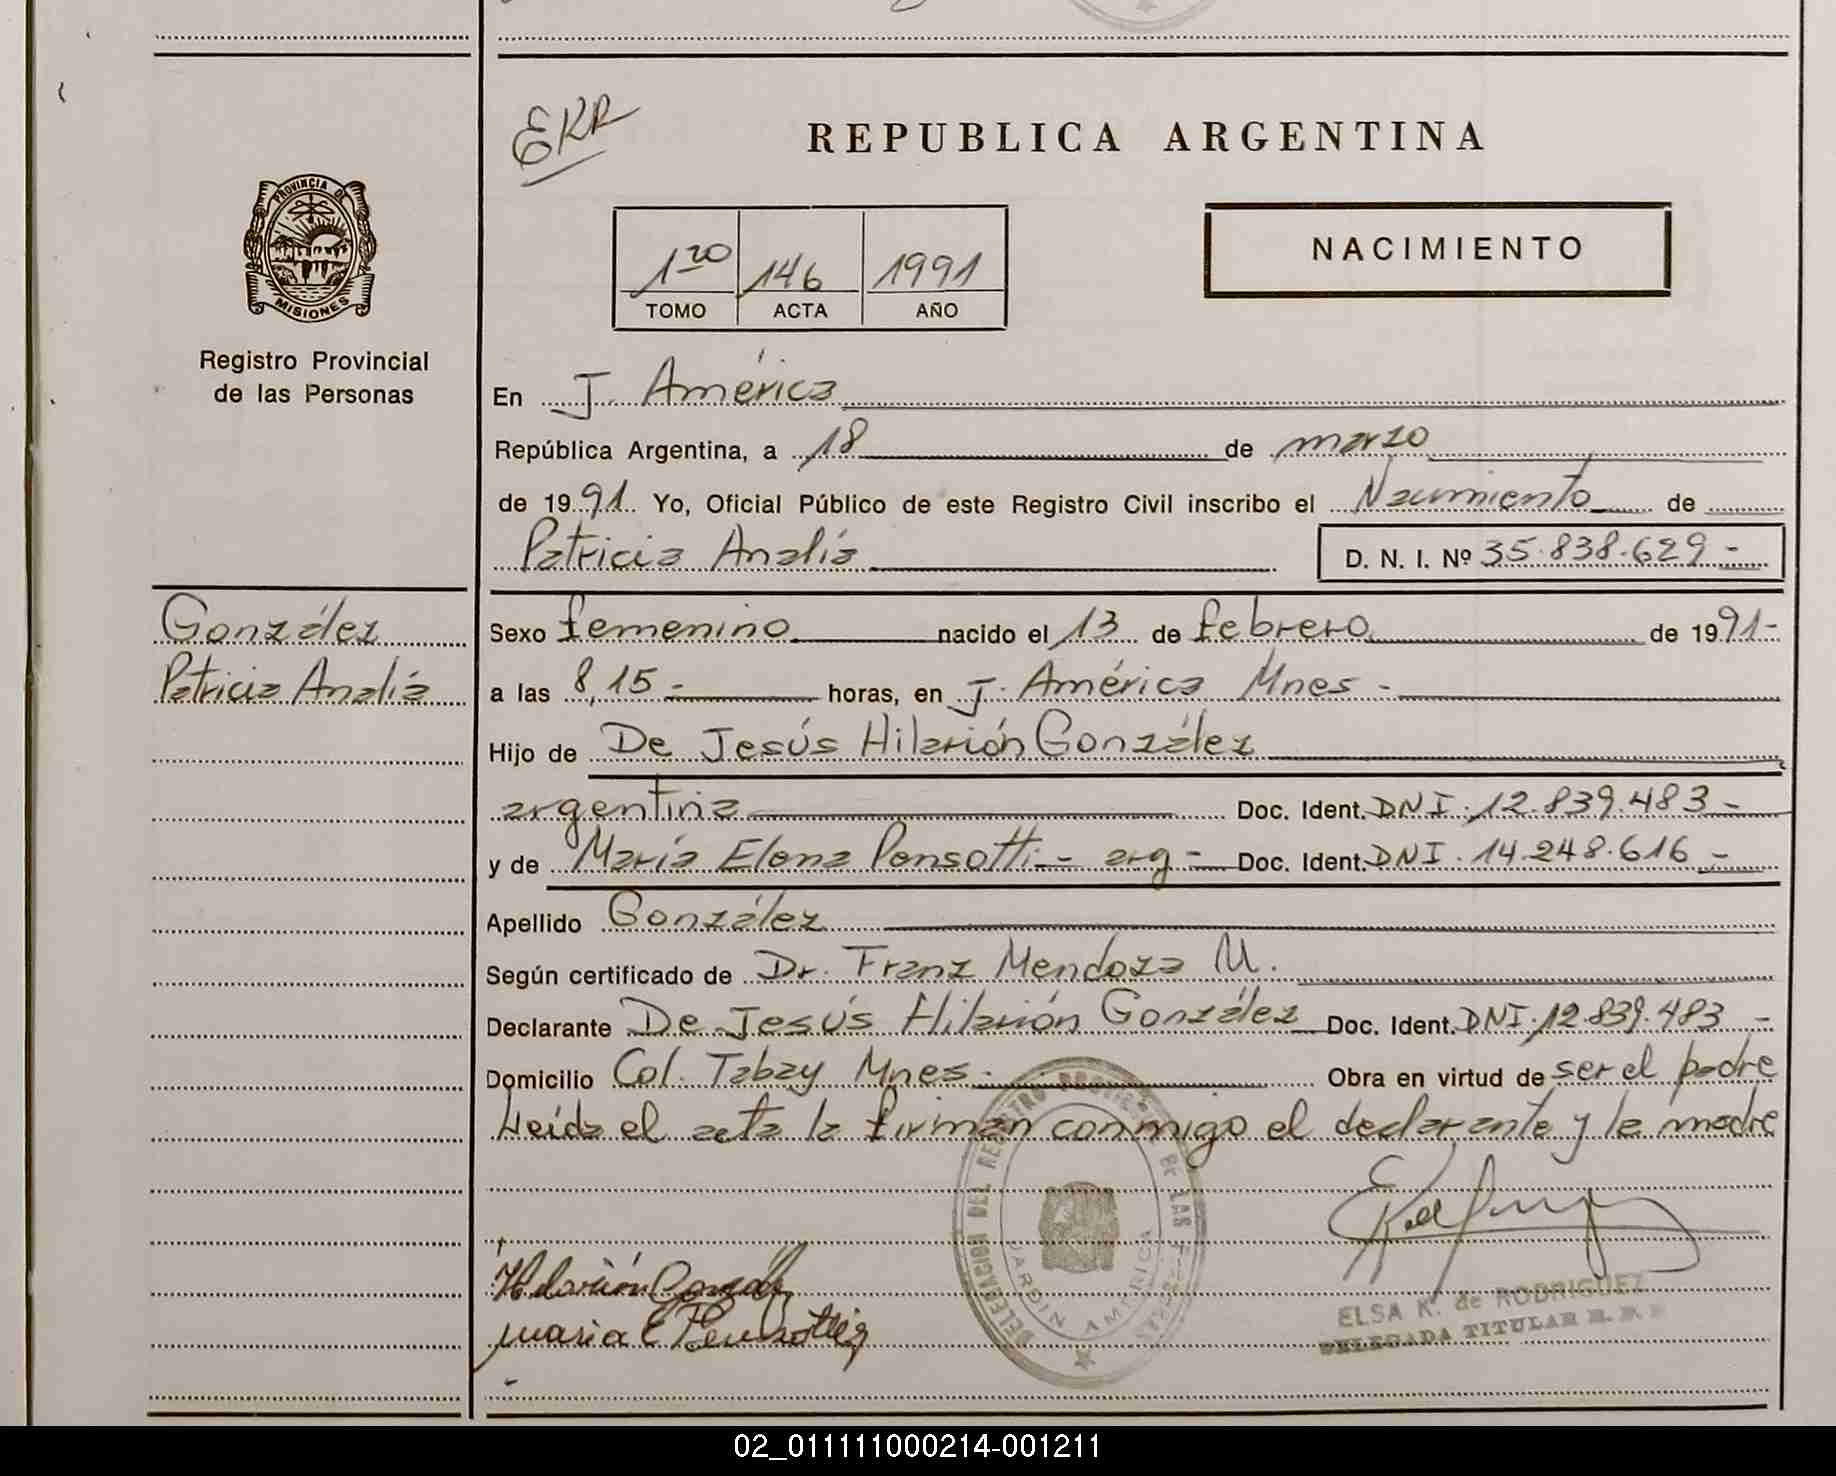 EKR
REPUBLICA ARGENTINA
PROVINCIA DE
MISIONES
Registro Provincial
de las Personas
1ro 146 1991
TOMO ACTA AÑO
NACIMIENTO
En J. América
República Argentina, a 18 de marzo
de 1991 Yo, Oficial Público de este Registro Civil inscribo el Nacimiento de
Patricia Analía D. N. I. Nº 35.838.629-
González
Patricia Analía
Sexo femenino nacido el 13 de febrero de 1991-
a las 8,15- horas, en J. América Mnes-
Hijo de De Jesús Hilarión González
argentina Doc. Ident. DNI. 12.839.483-
y de María Elena Pensotti- arg- Doc. Ident. DNI. 14.248.616-
Apellido González
Según certificado de Dr. Franz Mendoza M.
Declarante De Jesús Hilarión González Doc. Ident. DNI. 12.839.483-
Domicilio Col. Tabay Mnes- Obra en virtud de ser el padre
Leída el acta la firman conmigo el declarante y la madre
DELEGACION DEL REGISTRO PROVINCIAL DE LAS
JARDIN AMERICA
Hilarión González
maria E
ELSA K. de RODRIGUEZ
DELEGADA TITULAR R. P. P.
02_011111000214-001211